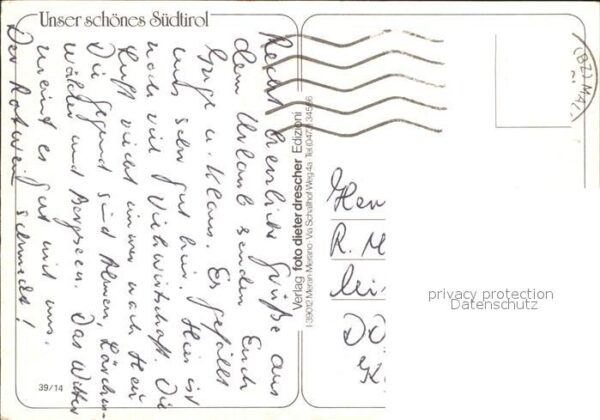 Unser schönes Südtirol
Recht herzliche Grüße aus
dem Urlaub senden Euch
Inge u. Klaus. Es gefällt
uns sehr gut hier. Hier ist
noch viel Viehwirtschaft. Die
Luft riecht immer nach Heu
Die Gegend sind Almen, Lärchen-
wälder und Bergseen. Das Wetter
meint es gut mit uns.
Der Rotwein schmeckt!
39/14
Verlag foto dieter drescher Edizioni
I-39012 Meran-Merano · Via Schaffhof Weg 4a · Tel.
(BZ) MA
R. M
D
K
privacy protection
Datenschutz